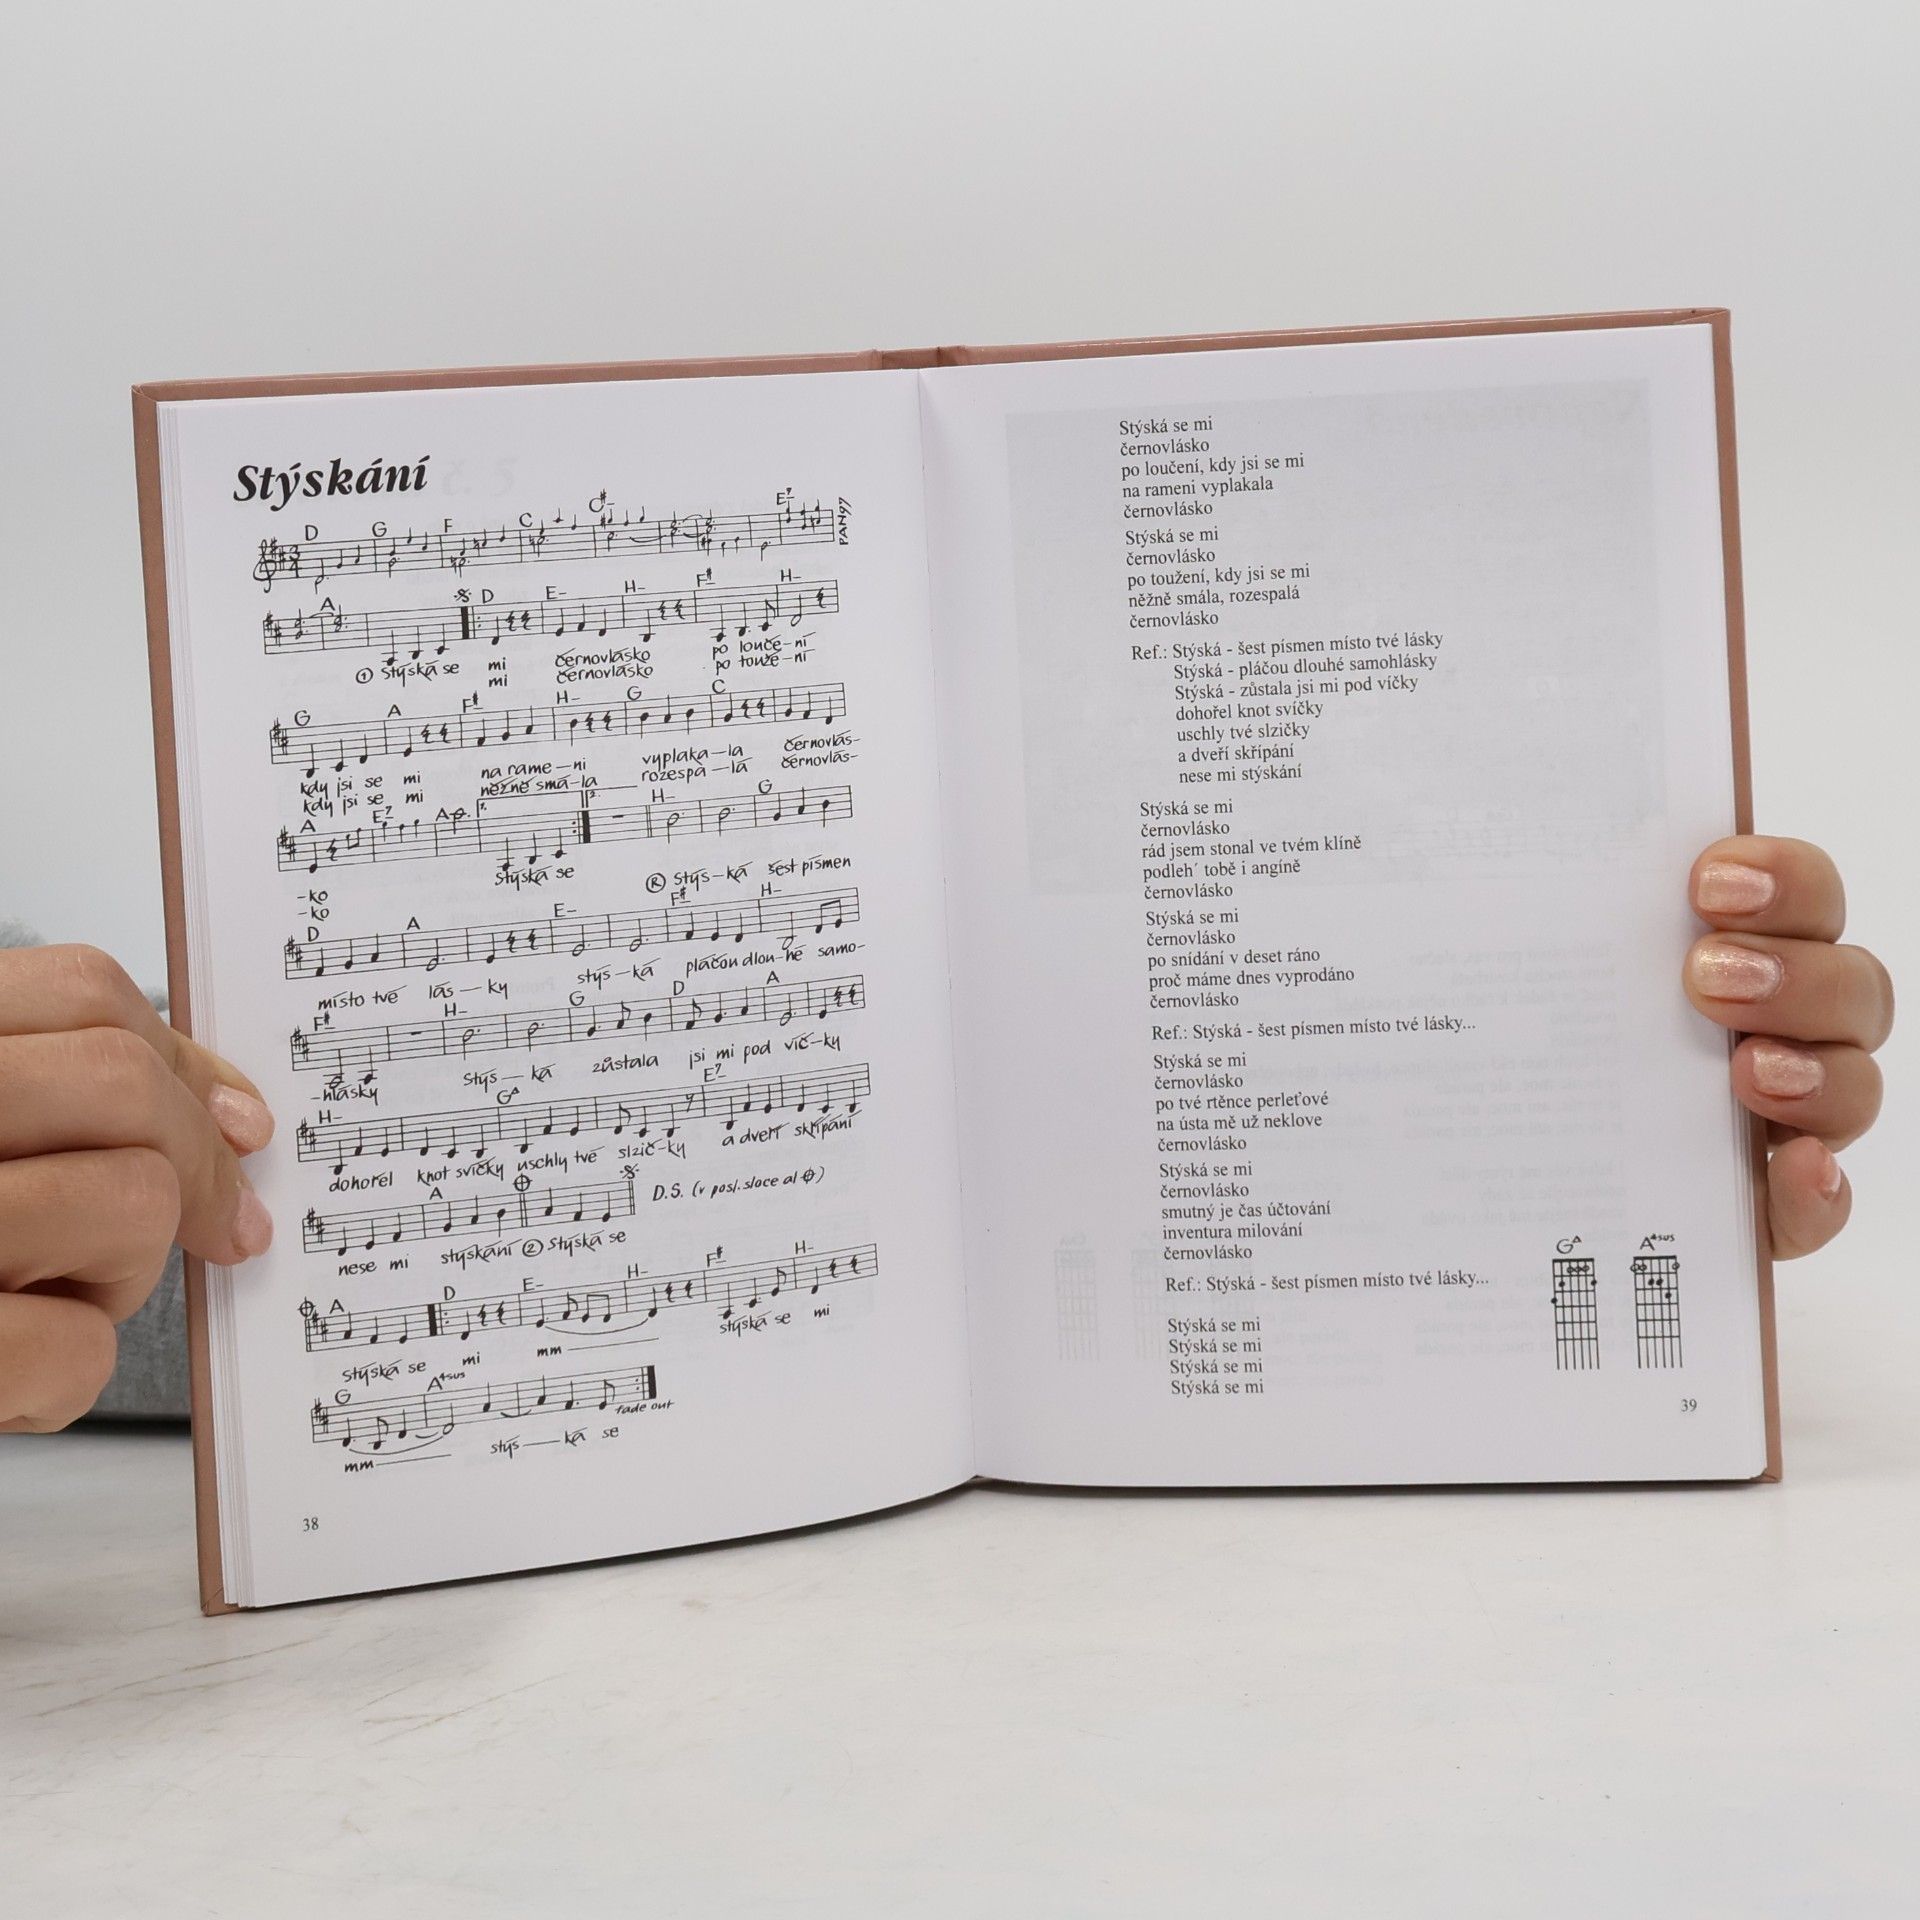 Stýskání
D G F C C#- E7
PAN97
A D E- H- F# H-
① Stýská se mi černovlásko po louče-ní
mi černovlásko po touže-ní
G A F# H- G C
kdy jsi se mi na rame-ni vyplaka-la černovlás-
kdy jsi se mi něžně smá-la rozespa-lá černovlás-
A E7 A 1. 2. H- G
-ko Stýská se Ⓡ Stýs-ká šest písmen
-ko
D A E- F# H-
místo tvé lás-ky stýs-ká pláčou dlou-hé samo-
F# H- G D A
-hlásky stýs-ká zůstala jsi mi pod víč-ky
H- G△ E7
dohořel knot svíčky uschly tvé slzič-ky a dveří skřípání
A D.S. (v posl. sloce al 𝄌)
nese mi stýskání ② Stýská se
A D E- H- F# H-
stýská se mi mm stýská se mi
G A4sus
fade out
mm stýs-ká se
38
Stýská se mi
černovlásko
po loučení, kdy jsi se mi
na rameni vyplakala
černovlásko
Stýská se mi
černovlásko
po toužení, kdy jsi se mi
něžně smála, rozespalá
černovlásko
Ref.: Stýská - šest písmen místo tvé lásky
Stýská - pláčou dlouhé samohlásky
Stýská - zůstala jsi mi pod víčky
dohořel knot svíčky
uschly tvé slzičky
a dveří skřípání
nese mi stýskání
Stýská se mi
černovlásko
rád jsem stonal ve tvém klíně
podleh´ tobě i angíně
černovlásko
Stýská se mi
černovlásko
po snídání v deset ráno
proč máme dnes vyprodáno
černovlásko
Ref.: Stýská - šest písmen místo tvé lásky...
Stýská se mi
černovlásko
po tvé rtěnce perleťové
na ústa mě už neklove
černovlásko
Stýská se mi
černovlásko
smutný je čas účtování
inventura milování
černovlásko
Ref.: Stýská - šest písmen místo tvé lásky...
Stýská se mi
Stýská se mi
Stýská se mi
Stýská se mi
G△ A4sus
39